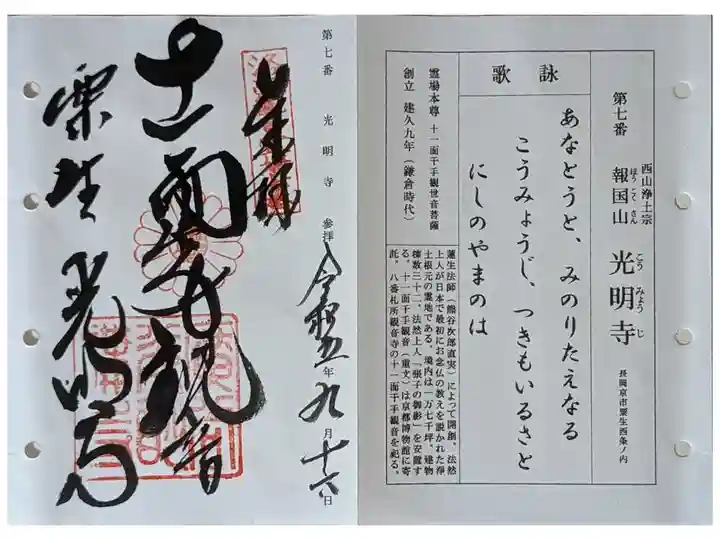 西山浄土宗
第七番 報国山 光明寺
ほうこくさん
こうみょうじ
長岡京市粟生西条ノ内
詠歌
あなとうと、みのりたえなる
こうみょうじ、つきもいるさと
にしのやまのは
霊場本尊 十一面千手観世音菩薩
創立 建久九年(鎌倉時代)
蓮生法師(熊谷次郎直実)によって開創。法然
上人が日本で最初にお念仏の教えを説かれた浄
土根元の霊地である。境内は一万七千坪。建物
棟数三十二、法然上人「張子の御影」を安置す
る。十一面千手観音(重文)は京都博物館に寄
託。八番札所観音寺の十一面千手観音を祀る。
第七番 光明寺 参拝
令和五年九月十六日
奉拝
十一面千手観音
粟生光明寺